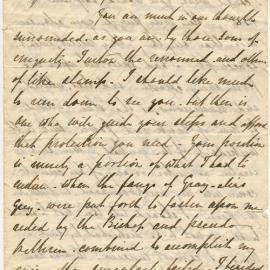 You are much in our thoughts
surrounded, as you are, by those sons of
iniquity, Tucker the renowned and others
of like stamp. I should like much
to run down to see you. but there is
One who will guide your steps and afford
that protection you need. Your position
is merely a portion of what I had to
endure. When the fangs of Gray - alias
Grey, were put forth to fasten upon me
aided by the Bishop and pseudo
brethren combined to accomplish my